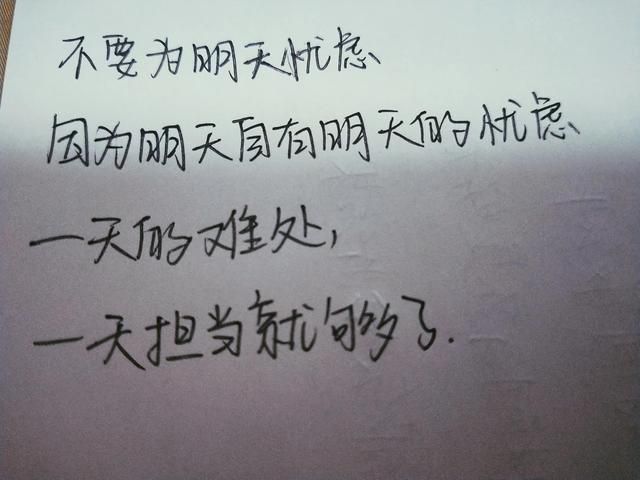 不要为明天忧虑
因为明天自有明天的忧虑
一天的难处,
一天担当就够了.